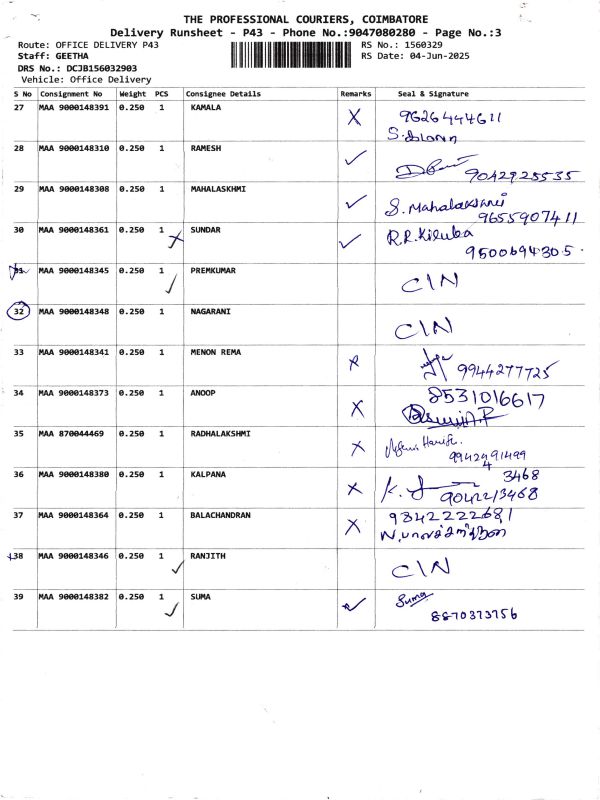 THE PROFESSIONAL COURIERS, COIMBATORE
Delivery Runsheet - P43 - Phone No.:9047080280 - Page No.:3
Route: OFFICE DELIVERY P43 RS No.: 1560329
Staff: GEETHA RS Date: 04-Jun-2025
DRS No.: DCJB156032903
Vehicle: Office Delivery
S No Consignment No Weight PCS Consignee Details Remarks Seal & Signature
27 MAA 9000148391 0.250 1 KAMALA X 9626444611
28 MAA 9000148310 0.250 1 RAMESH ✓ 9042925535
29 MAA 9000148308 0.250 1 MAHALASKHMI ✓ S. Mahalakshmi
9655907411
30 MAA 9000148361 0.250 1 SUNDAR ✓ R.R. Kiruba
9500694305.
31 MAA 9000148345 0.250 1 PREMKUMAR CIN
32 MAA 9000148348 0.250 1 NAGARANI CIN
33 MAA 9000148341 0.250 1 MENON REMA 9944277725
34 MAA 9000148373 0.250 1 ANOOP X 8531016617
35 MAA 870044469 0.250 1 RADHALAKSHMI X
36 MAA 9000148380 0.250 1 KALPANA X 3468
9042213468
37 MAA 9000148364 0.250 1 BALACHANDRAN X 9842222681
38 MAA 9000148346 0.250 1 RANJITH CIN
39 MAA 9000148382 0.250 1 SUMA Suma
8870373756